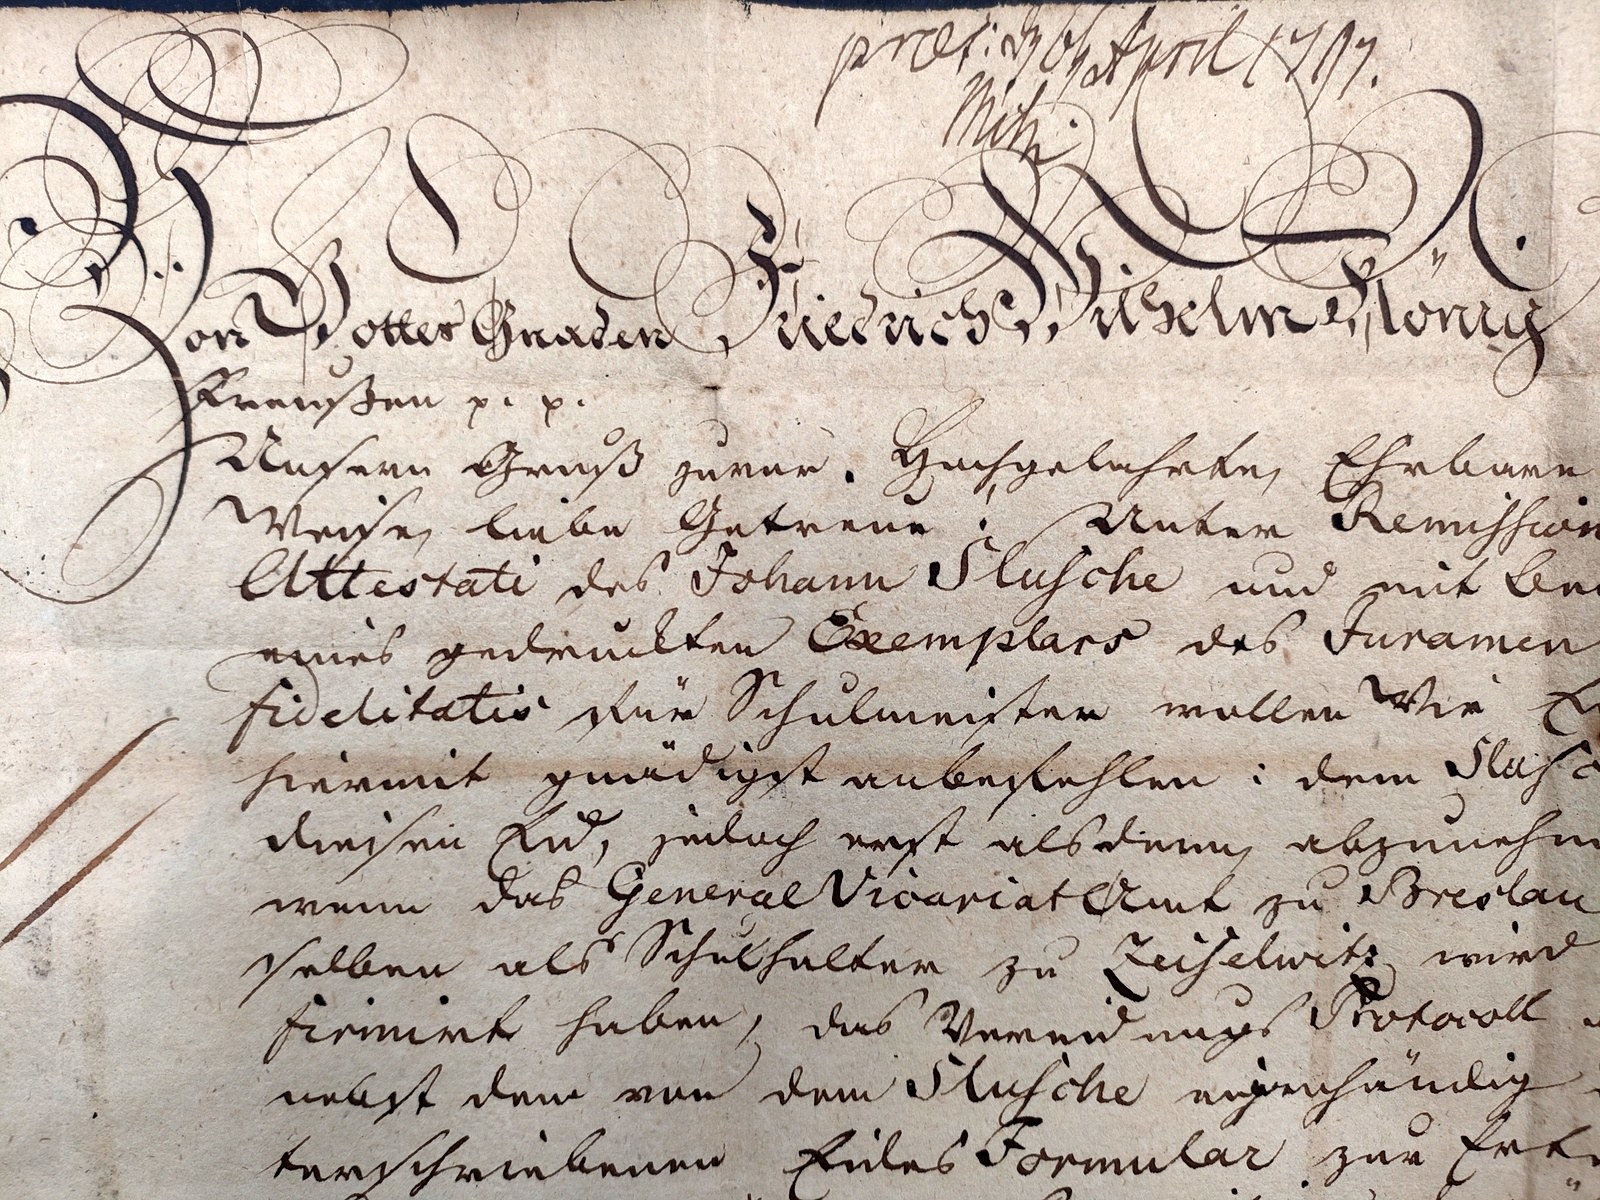 præs: d 6t April 1797.
Von Gottes Gnaden Friedrich Wilhelm König
Preußen p. p.
Unsern Gruß zuvor. Hochgelahrte, Ehrbare
Weise, liebe Getreue! Unter Remission
Attestati des Johann Slusche und mit Bei
eines gedruckten Exemplars des Juramen
fidelitatis für Schulmeister wollen Wir E
hiermit gnädigst anbefehlen: dem Slusc
diesen Eid, jedoch erst alsdenn, abzunehm
wenn das General Vicariat Amt zu Breslau
selben als Schulhalter zu Zeiselwitz wird
firmirt haben, das Vereidungs Protocoll
nebst dem von dem Slusche eigenhändig
terschriebenen Eides Formular zur